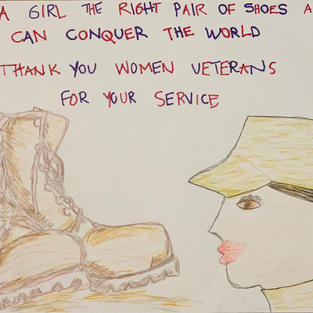 A GIRL THE RIGHT PAIR OF SHOES A
CAN CONQUER THE WORLD
THANK YOU WOMEN VETERANS
FOR YOUR SERVICE